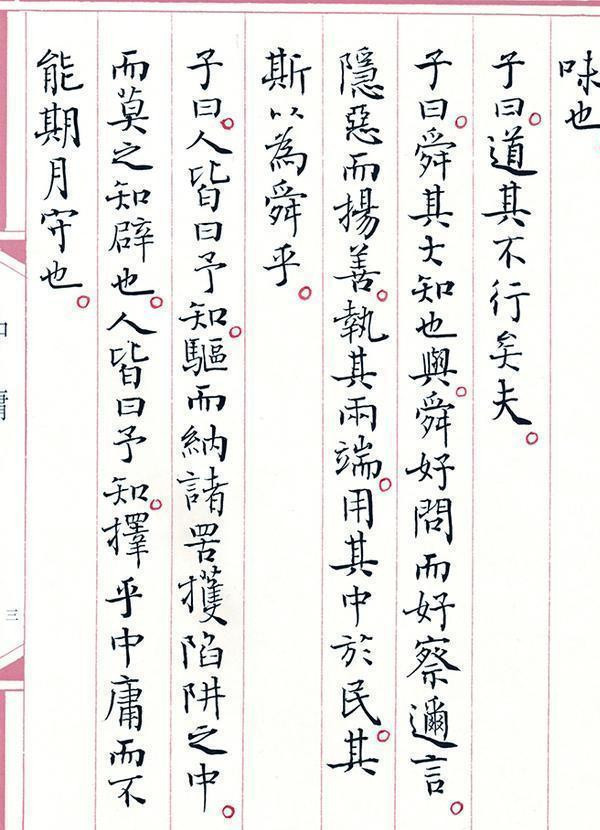 味也
子曰。道其不行矣夫。
子曰。舜其大知也與。舜好問而好察邇言。
隱惡而揚善。執其兩端。用其中於民。其
斯以為舜乎。
子曰。人皆曰予知。驅而納諸罟擭陷阱之中。
而莫之知辟也。人皆曰予知。擇乎中庸而不
能期月守也。
中庸
三